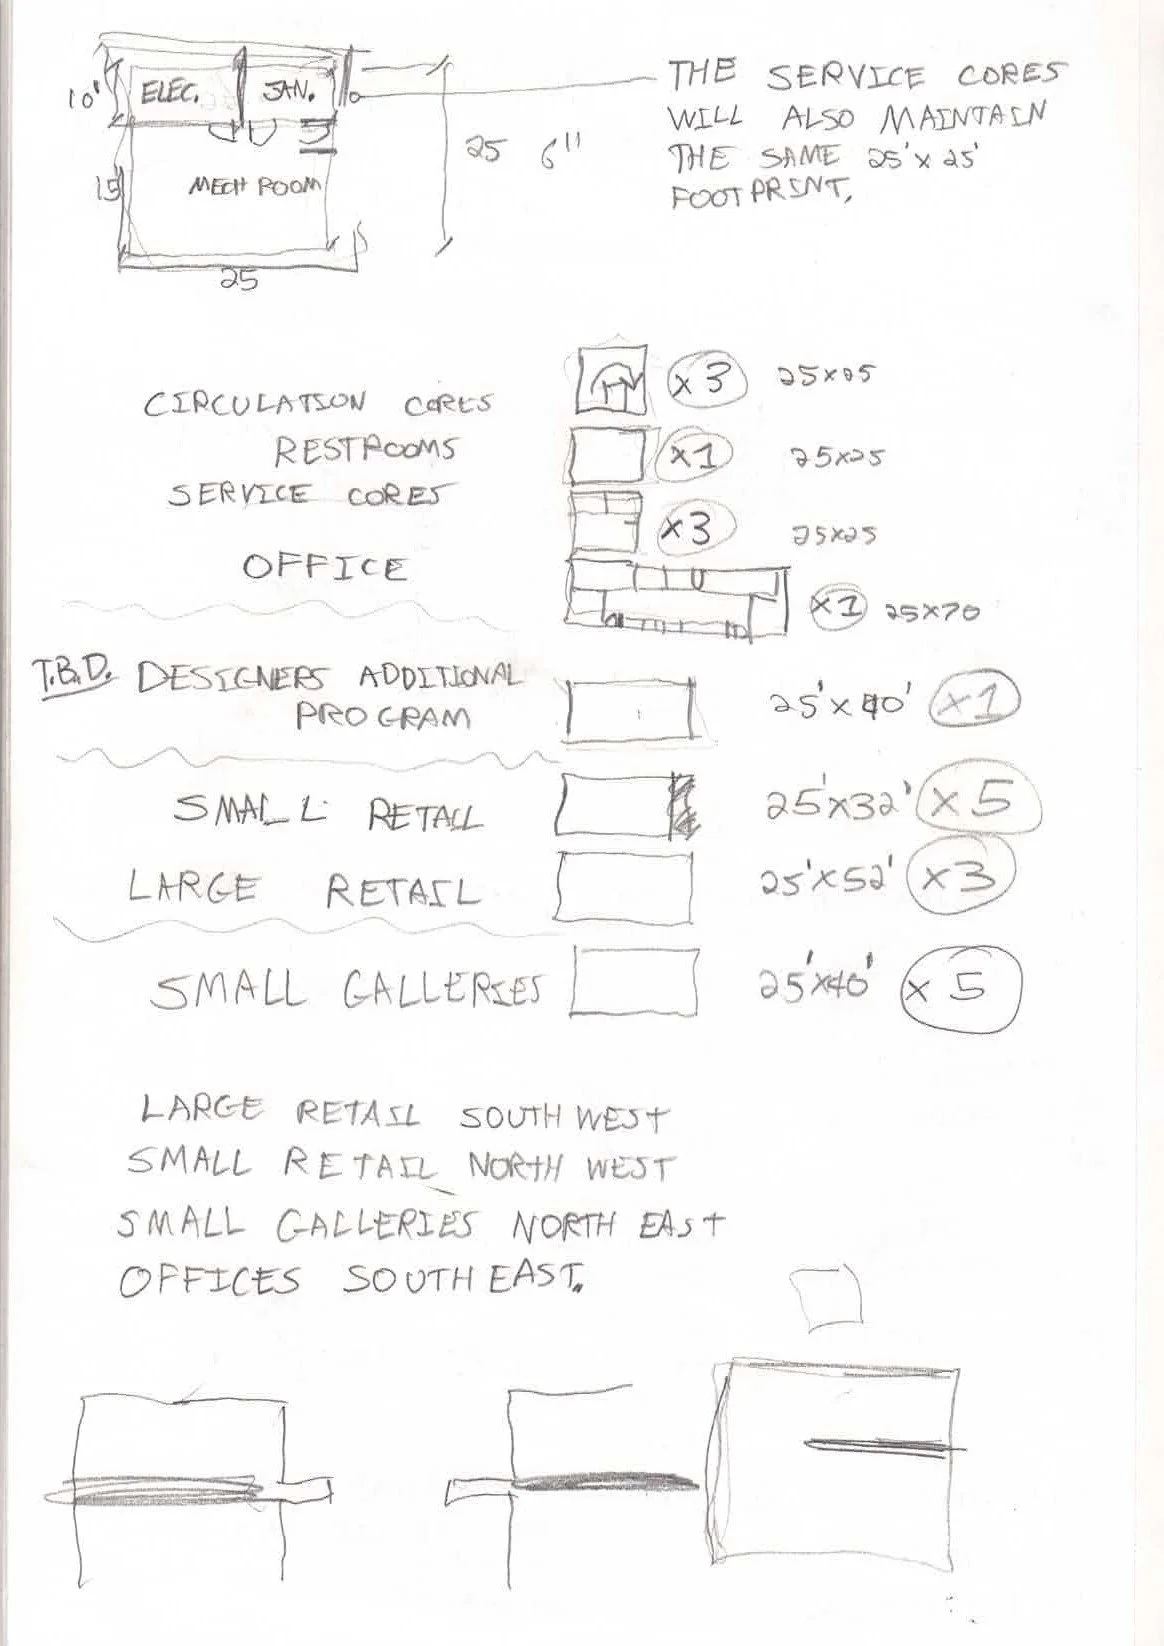 10'
ELEC.
JAN.
15'
MECH ROOM
25
25 6"
THE SERVICE CORES
WILL ALSO MAINTAIN
THE SAME 25'x25'
FOOTPRINT.
CIRCULATION CORES x3 25x25
RESTROOMS x1 25x25
SERVICE CORES x3 25x25
OFFICE x1 25x70
T.B.D. DESIGNERS ADDITIONAL
PROGRAM 25'x40' x1
SMALL RETAIL 25'x32' x5
LARGE RETAIL 25'x52' x3
SMALL GALLERIES 25'x40' x5
LARGE RETAIL SOUTH WEST
SMALL RETAIL NORTH WEST
SMALL GALLERIES NORTH EAST
OFFICES SOUTH EAST.